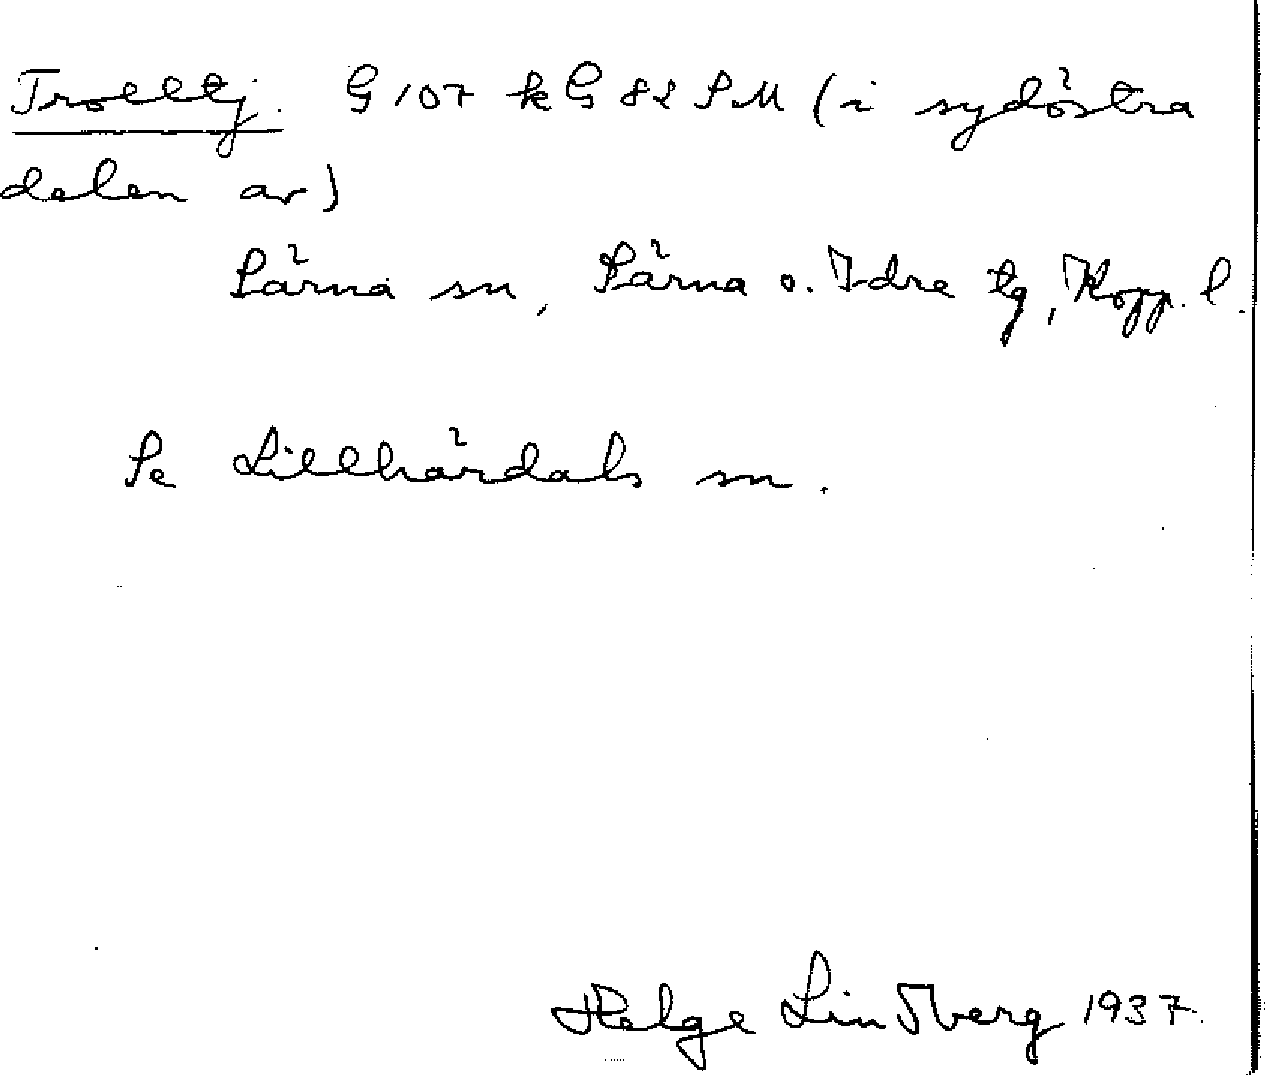 Trolltj. G 107 k G 82 SM (i sydöstra
delen av)
Särna sn, Särna o. Idre tg, Kopp. l.
Se Lillhärdals sn.
Helge Lindberg 1937.